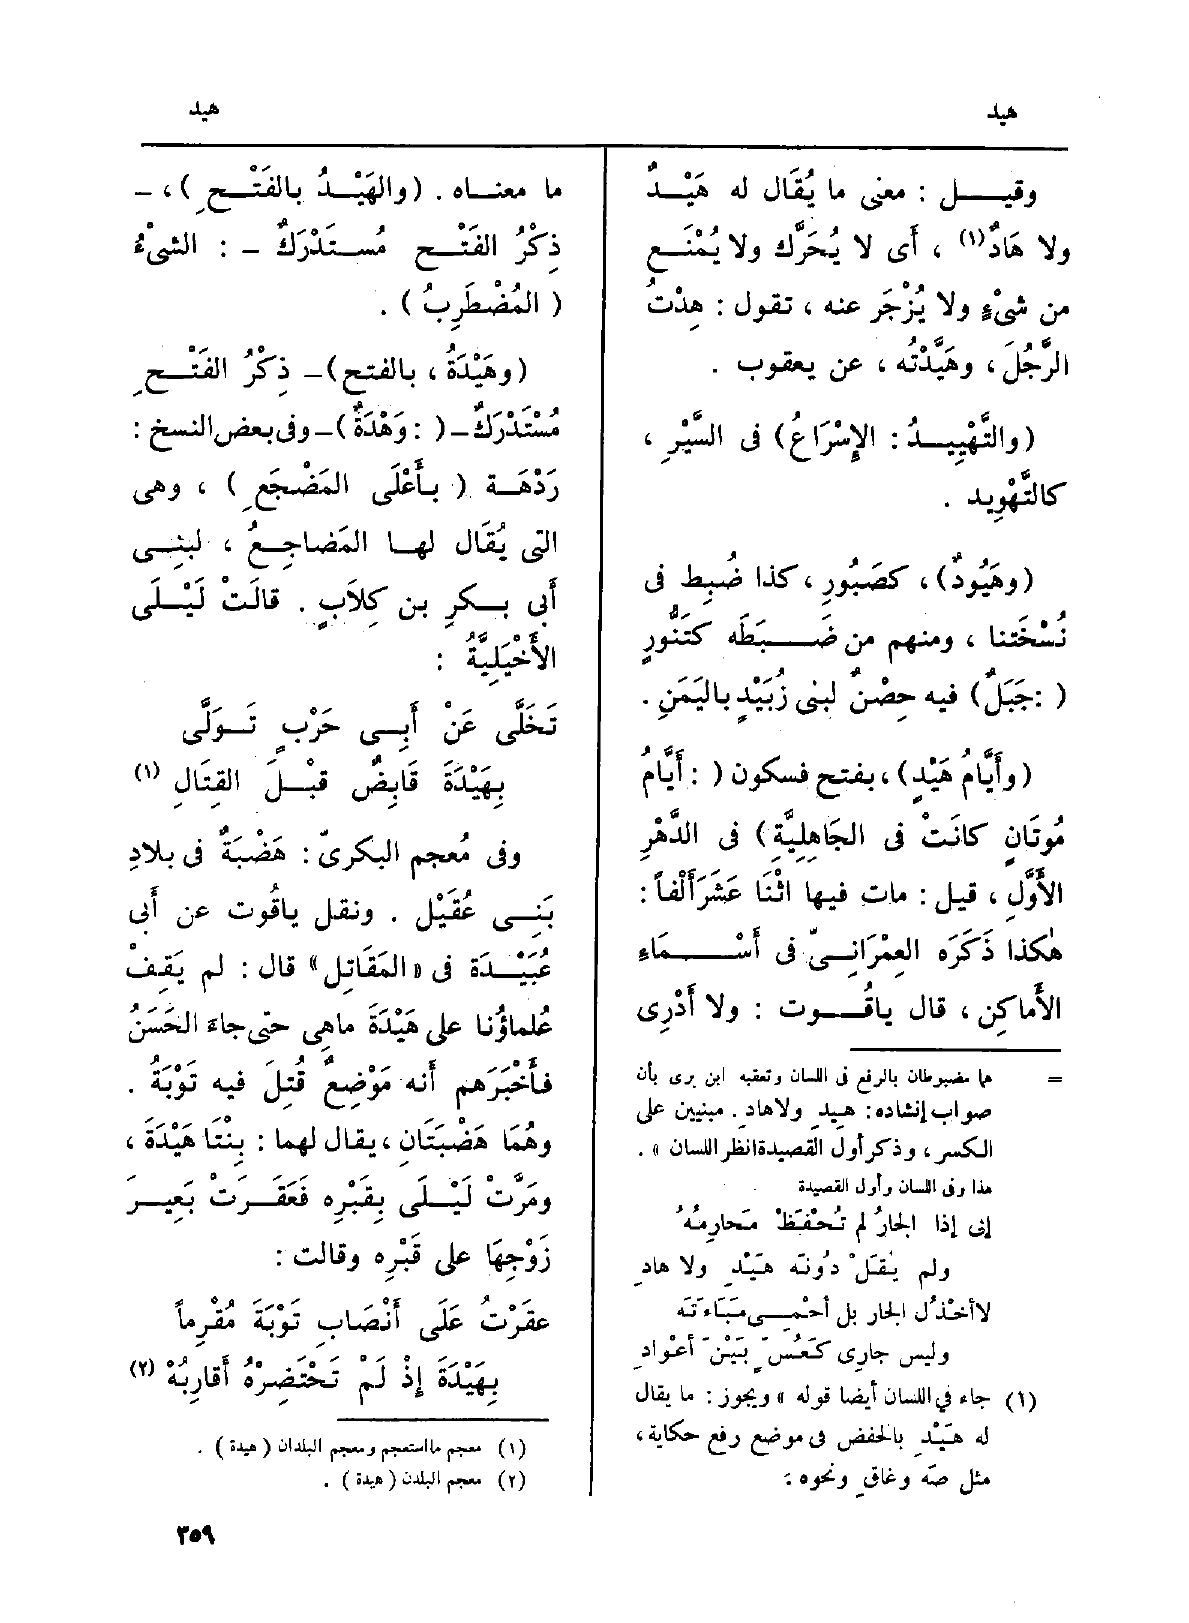 هيد
هيد
وقيـــل : معنى ما يُقَال له هَيْـدٌ
ولا هَادٌ(١) ، أَى لا يُحَرَّك ولا يُمْنَـع
من شَىْءٍ ولا يُزْجَر عنه ، تقول : هِدْتُ
الرَّجُلَ ، وهَيَّدْتُه ، عن يعقوب .
(والتَّهْيِيــدُ : الإِسْرَاعُ) فى السَّيْرِ ،
كالتَّهْوِيد .
(وهَيُودٌ) ، كصَبُورٍ ، كذا ضُبِط فى
نُسْخَتنا ، ومنهم من ضَــبَطَه كتَنُّورٍ
( : جَبَلٌ) فيه حِصْنٌ لبنى زُبَيْدٍ باليَمَنِ .
(وأَيَّامُ هَيْدٍ) ، بفتح فسكون ( : أَيَّامُ
مُوتَانٍ كانَتْ فى الجَاهِلِيَّة) فى الدَّهْرِ
الأَوَّلِ ، قيل : مات فيها اثْنَا عَشَرَ أَلْفاً :
هٰكذا ذَكَرَه العِمْرَانِـىّ فى أَسْـــمَاءِ
الأَماكِن ، قال ياقُــوت : ولا أَدْرِى
= هما مضبوطان بالرفع فى اللسان وتعقبه ابن برى بأن
صواب إنشاده : هيدِ ولاهادِ . مبنيين على
الكسر ، وذكر أول القصيدة انظر اللسان » .
هذا وفى اللسان وأول القصيدة
إنى إذا الجارُ لم تُحْفَظْ مَحارِمُهُ
ولم يُقَلْ دُونَه هَيْدِ ولا هادِ
لا أخْذُلُ الجار بل أحْمِـى مَبَاءَتَه
وليس جارِى كَعُسٍّ بَيْنَ أعْوادِ
(١) جاء فى اللسان أيضا قوله » ويجوز : ما يقال
له هَيْدِ بالخفض فى موضع رفع حكاية ،
مثل صَهِ وغاقِ ونحوه :
ما معنـاه . (والهَيْــدُ بالفَتْــحِ ) ، ــ
ذِكْرُ الفَتْـح مُسـتَدْرَكٌ ــ : الشىْءُ
( المُضْطَرِبُ ) .
(وهَيْدَةُ ، بالفتح) ــ ذِكْرُ الفَتْــحِ
مُسْتَدْرَكٌ ــ ( : وَهْدَةٌ ) ــ وفى بعض النسخ :
رَدْهَــة ( بأَعْلَى المَضْجَعِ ) ، وهى
التى يُقَال لهـا المَضاجِـعُ ، لبنِــى
أَبى بـكرِ بن كِلاَبٍ . قالَتْ لَيْـلَى
الأَخْيَلِيَّةُ :
تَخَلَّى عَنْ أَبِـى حَرْبٍ تَــوَلَّى
بِهَيْدَةَ قَابِضٌ قَبْـلَ القِتَالِ (١)
وفى مُعجم البكرىّ : هَضْبَةٌ فى بلادِ
بَنِــى عُقَيْل . ونقل ياقُوت عن أَبى
عُبَيْــدَة فى «المَقَاتِل» قال : لم يَقِفْ
عُلماؤُنا على هَيْدَةَ ماهى حتى جاءَ الحَسَنُ
فأَخْبَرَهم أَنه مَوْضِعٌ قُتِلَ فيه تَوْبَةُ .
وهُمَا هَضْبَتَانِ ، يقال لهما : بِنْتَا هَيْدَةَ ،
ومَرَّتْ لَيْــلَى بِقَبْرِه فَعَقَــرَتْ بَعِيــرَ
زَوْجِهَا على قَبْرِه وقالت :
عقَرْتُ عَلَى أَنْصَابِ تَوْبَةَ مُقْرِماً
بِهَيْدَةَ إِذْ لَمْ تَحْتَضِرْهُ أَقارِبُهْ (٢)
(١) معجم ما استعجم ومعجم البلدان ( هيدة ) .
(٢) معجم البلدن ( هيدة ) .
٣٥٩